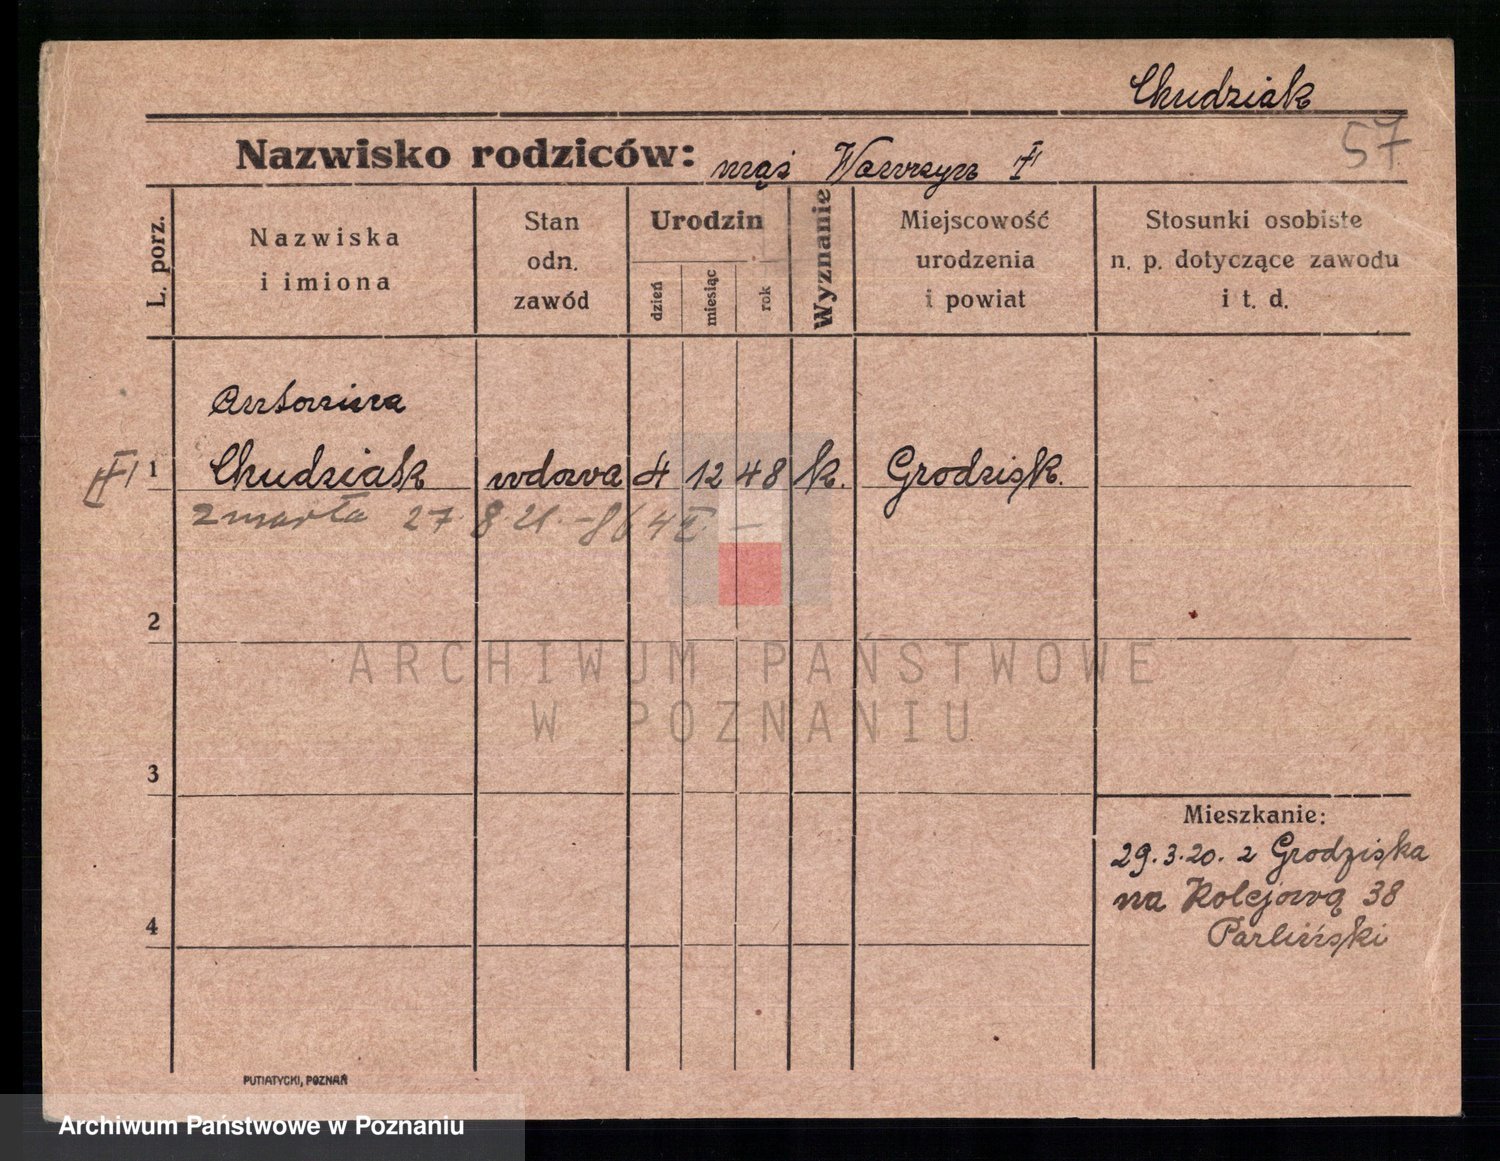 Chudziak
57
Nazwisko rodziców: mąż Wawrzyn
L. porz.
Nazwiska
i imiona
Stan
odn.
zawód
Urodzin
dzień
miesiąc
rok
Wyznanie
Miejscowość
urodzenia
i powiat
Stosunki osobiste
n. p. dotyczące zawodu
i t. d.
Antonina
1 Chudziak wdowa 4 12 48 k. Grodzisk.
zmarła 27. 8. 21.
2
ARCHIWUM PAŃSTWOWE
W POZNANIU
3
Mieszkanie:
29.3.20. z Grodziska
na Kolejową 38
4
PUTIATYCKI, POZNAŃ
Archiwum Państwowe w Poznaniu